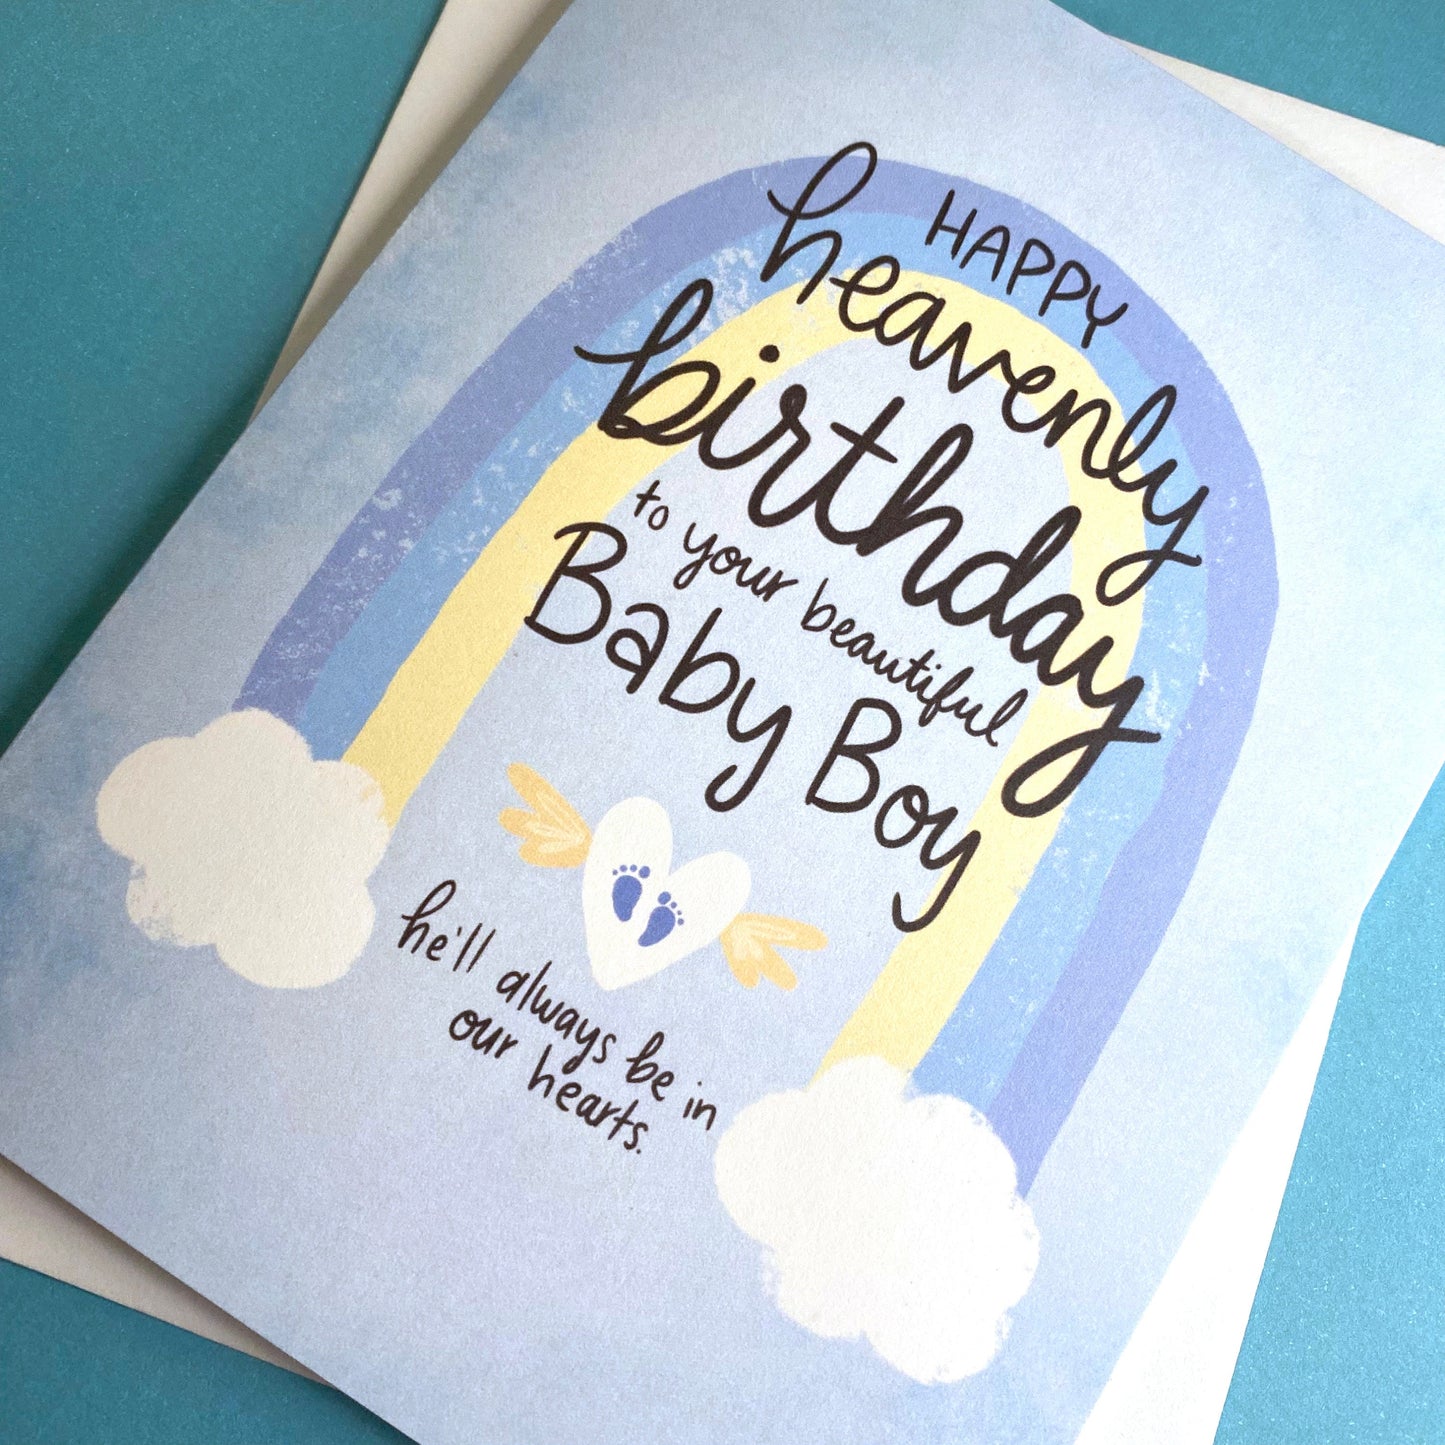 HAPPY
heavenly
birthday
to your beautiful
Baby Boy
he'll always be in
our hearts.